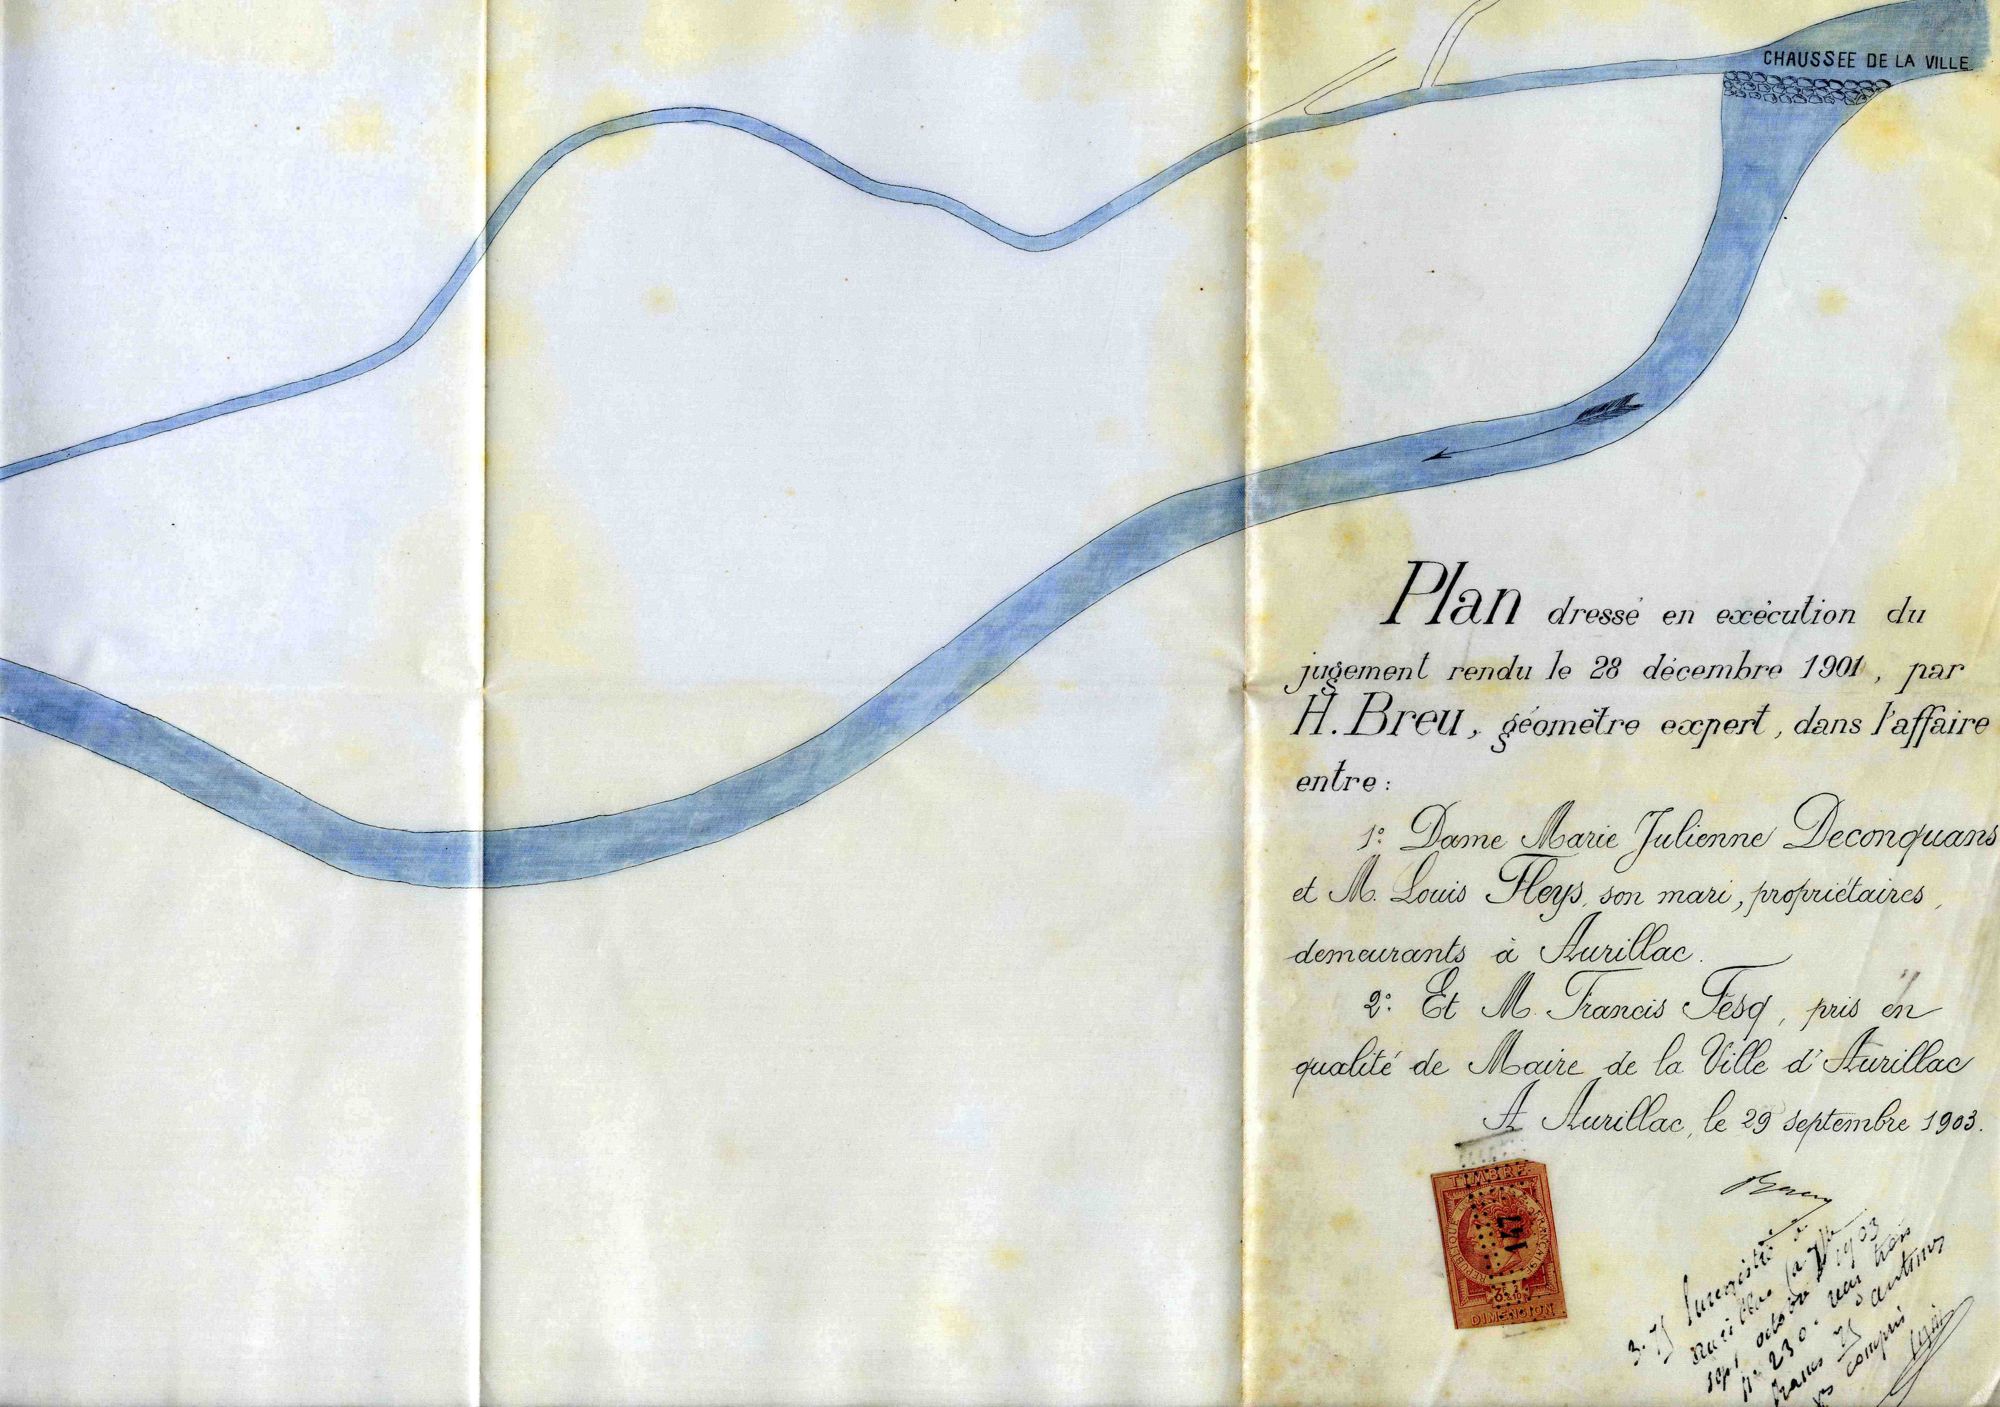 CHAUSSEE DE LA VILLE
Plan dressé en exécution du
jugement rendu le 28 décembre 1901, par
H. Breu, géomètre expert, dans l'affaire
entre:
1° Dame Marie Julienne Deconquans
et M. Louis Fleys, son mari, propriétaires,
demeurants à Aurillac.
2° Et M. Francis Fesq, pris en
qualité de Maire de la Ville d'Aurillac
A Aurillac, le 29 septembre 1903.
TIMBRE
REPUBLIQUE FRANÇAISE
147
DIMENSION
3.75 Enregistré à
octobre 1903
n° 230. trois
francs 75 centimes
compris